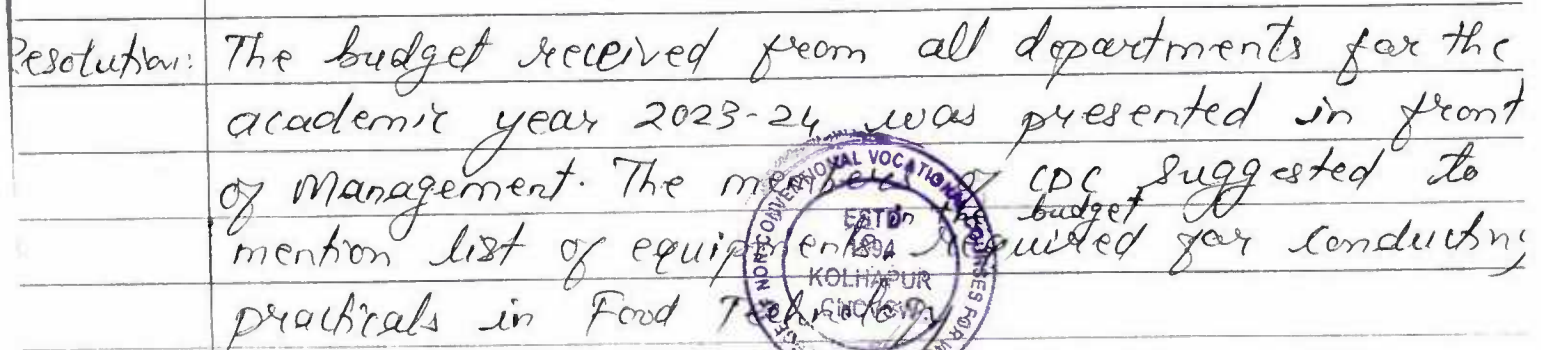 Resolution: The budget received from all departments for the
academic year 2023-24 was presented in front
of Management. The members of CDC suggested to
in the budget
mention list of equipments required for conducting
practicals in Food Technology
NON-CONVENTIONAL VOCATIONAL COURSES FOR W
ESTD
1994
KOLHAPUR